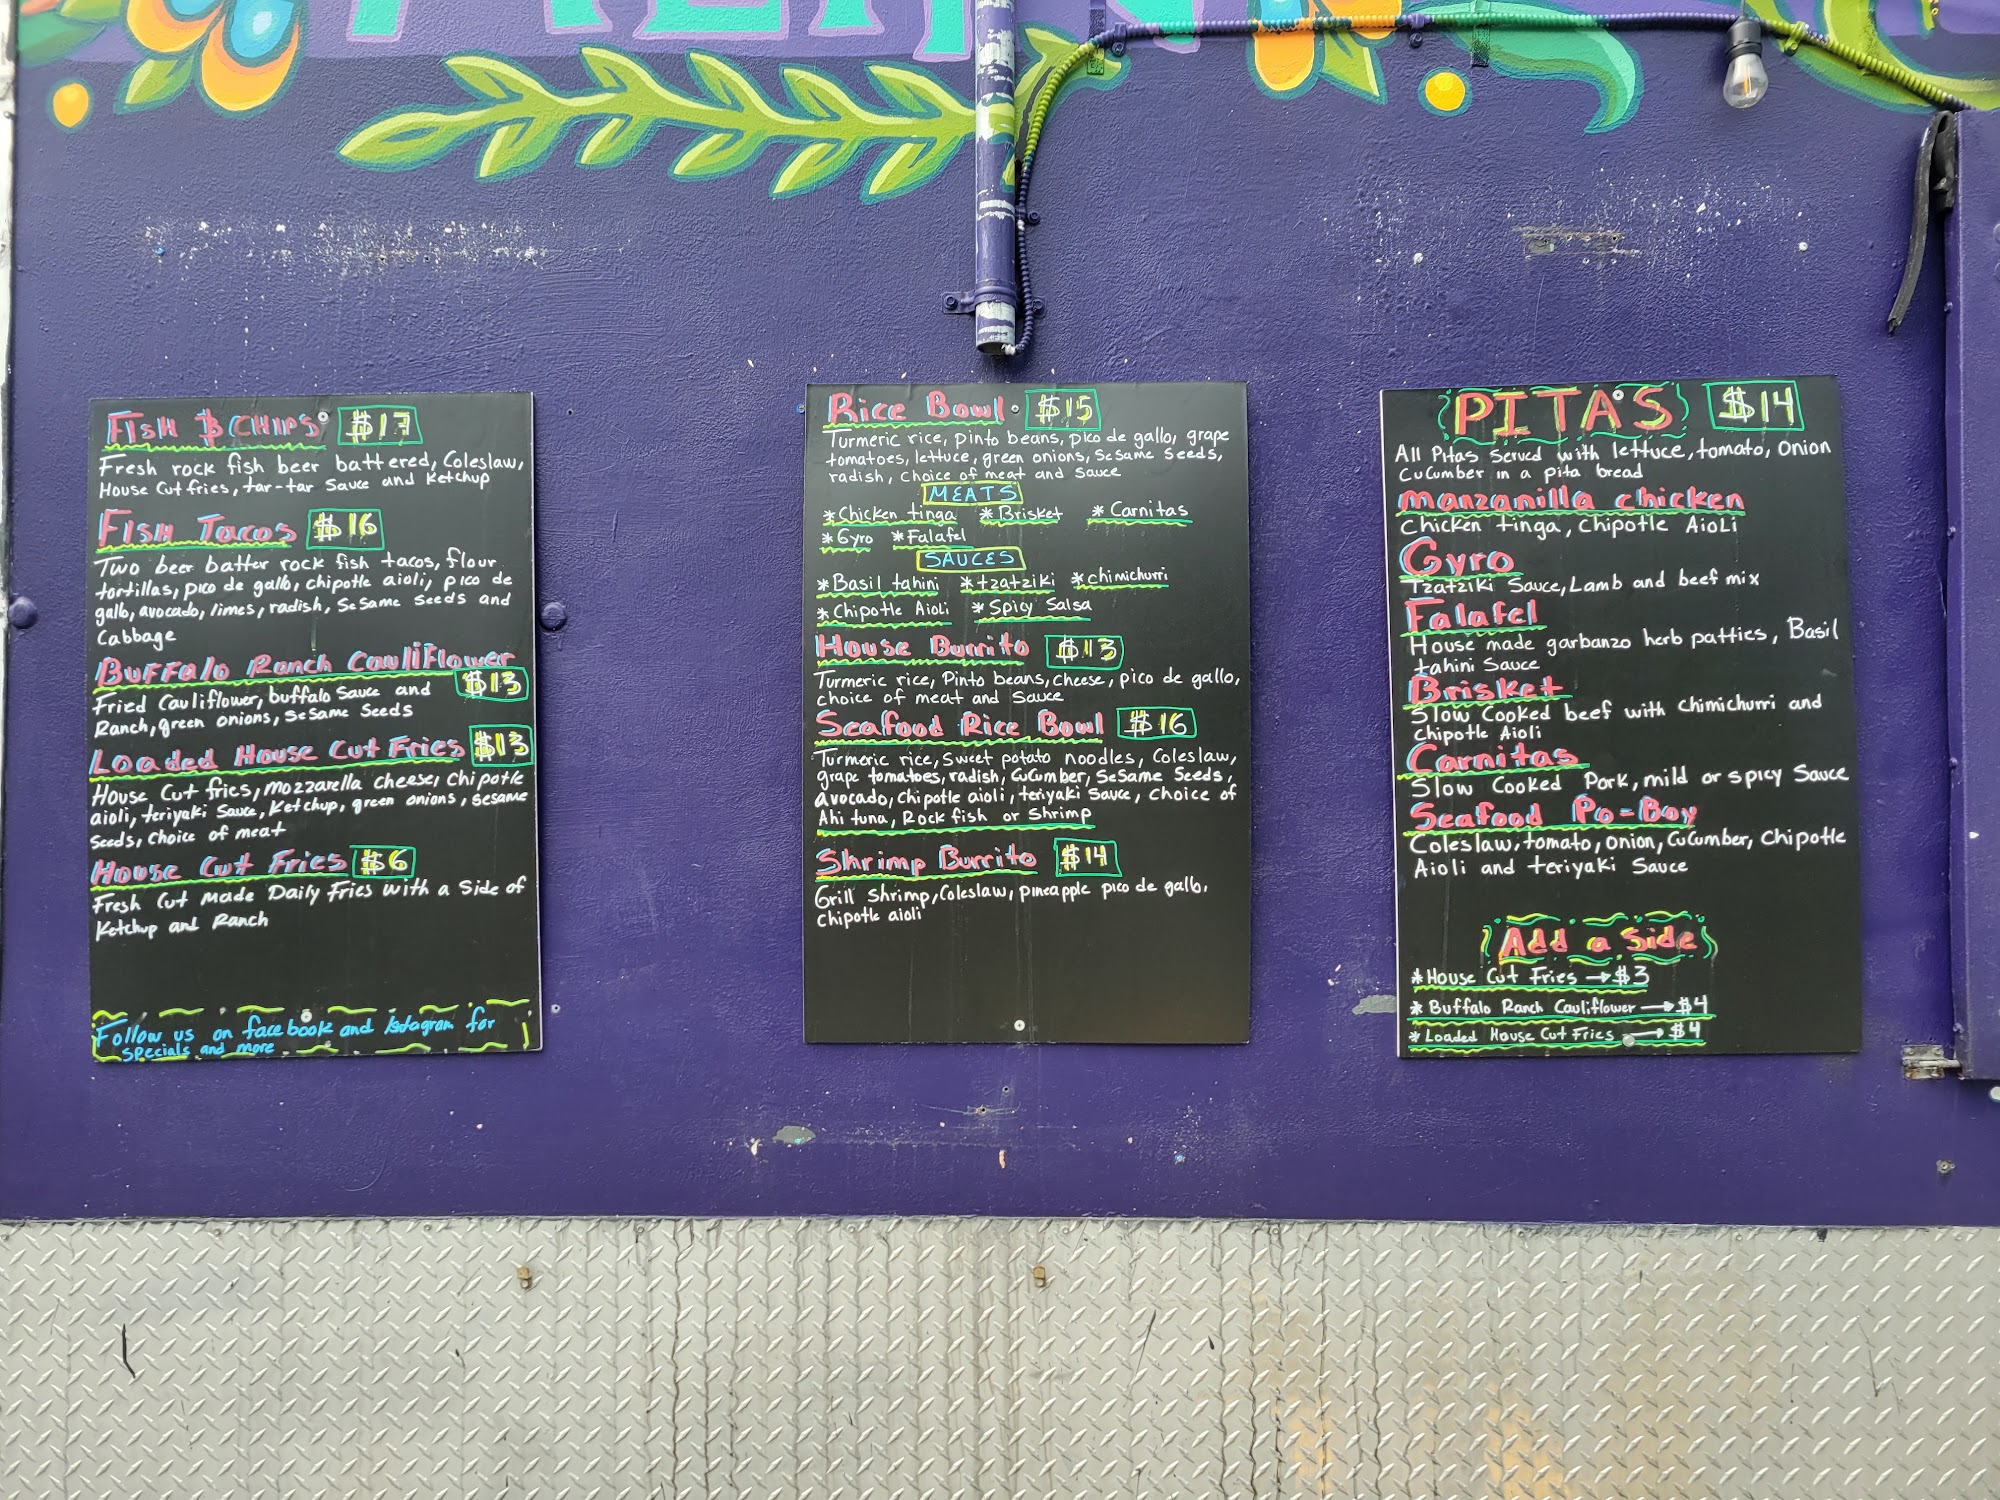 Fish & Chips $17
Fresh rock fish beer battered, Coleslaw,
House Cut fries, tar-tar Sauce and Ketchup
Fish Tacos $16
Two beer batter rock fish tacos, flour
tortillas, pico de gallo, chipotle aioli, pico de
gallo, avocado, limes, radish, Sesame Seeds and
Cabbage
Buffalo Ranch Cauliflower
$13
Fried Cauliflower, buffalo Sauce and
Ranch, green onions, Sesame Seeds
Loaded House Cut Fries $13
House Cut fries, mozzarella cheese, Chipotle
aioli, teriyaki Sauce, Ketchup, green onions, Sesame
Seeds, Choice of meat
House Cut Fries $6
Fresh Cut Made Daily Fries with a Side of
Ketchup and Ranch
Follow us on facebook and for
specials and more
Rice Bowl $15
Turmeric rice, pinto beans, pico de gallo, grape
tomatoes, lettuce, green onions, Sesame Seeds,
radish, Choice of meat and Sauce
MEATS
* Chicken tinga * Brisket * Carnitas
* Gyro * Falafel
SAUCES
* Basil tahini * tzatziki * chimichurri
* Chipotle Aioli * Spicy Salsa
House Burrito $13
Turmeric rice, Pinto beans, Cheese, pico de gallo,
choice of meat and Sauce
Seafood Rice Bowl $16
Turmeric rice, Sweet potato noodles, Coleslaw,
grape tomatoes, radish, Cucumber, Sesame Seeds,
avocado, chipotle aioli, teriyaki Sauce, Choice of
Ahi tuna, Rock fish or Shrimp
Shrimp Burrito $14
Grill Shrimp, Coleslaw, pineapple pico de gallo,
Chipotle aioli
PITAS $14
All Pitas Served with lettuce, tomato, onion
Cucumber in a pita bread
Manzanilla Chicken
Chicken tinga, Chipotle Aioli
Gyro
Tzatziki Sauce, Lamb and beef mix
Falafel
House made garbanzo herb patties, Basil
tahini Sauce
Brisket
Slow Cooked beef with chimichurri and
Chipotle Aioli
Carnitas
Slow Cooked Pork, mild or spicy Sauce
Seafood Po-Boy
Coleslaw, tomato, onion, Cucumber, Chipotle
Aioli and teriyaki Sauce
Add a Side
* House Cut Fries → $3
* Buffalo Ranch Cauliflower → $4
* Loaded House Cut Fries → $4